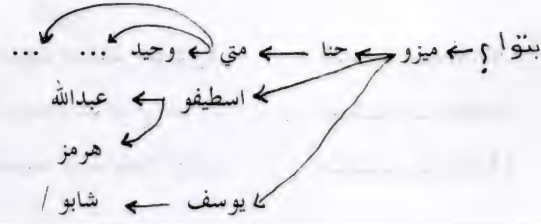 بتوا ؟ ← ميزو ← حنا ← متي ← وحيد ... ...
اسطيفو ← عبدالله
هرمز
يوسف ← شابو /